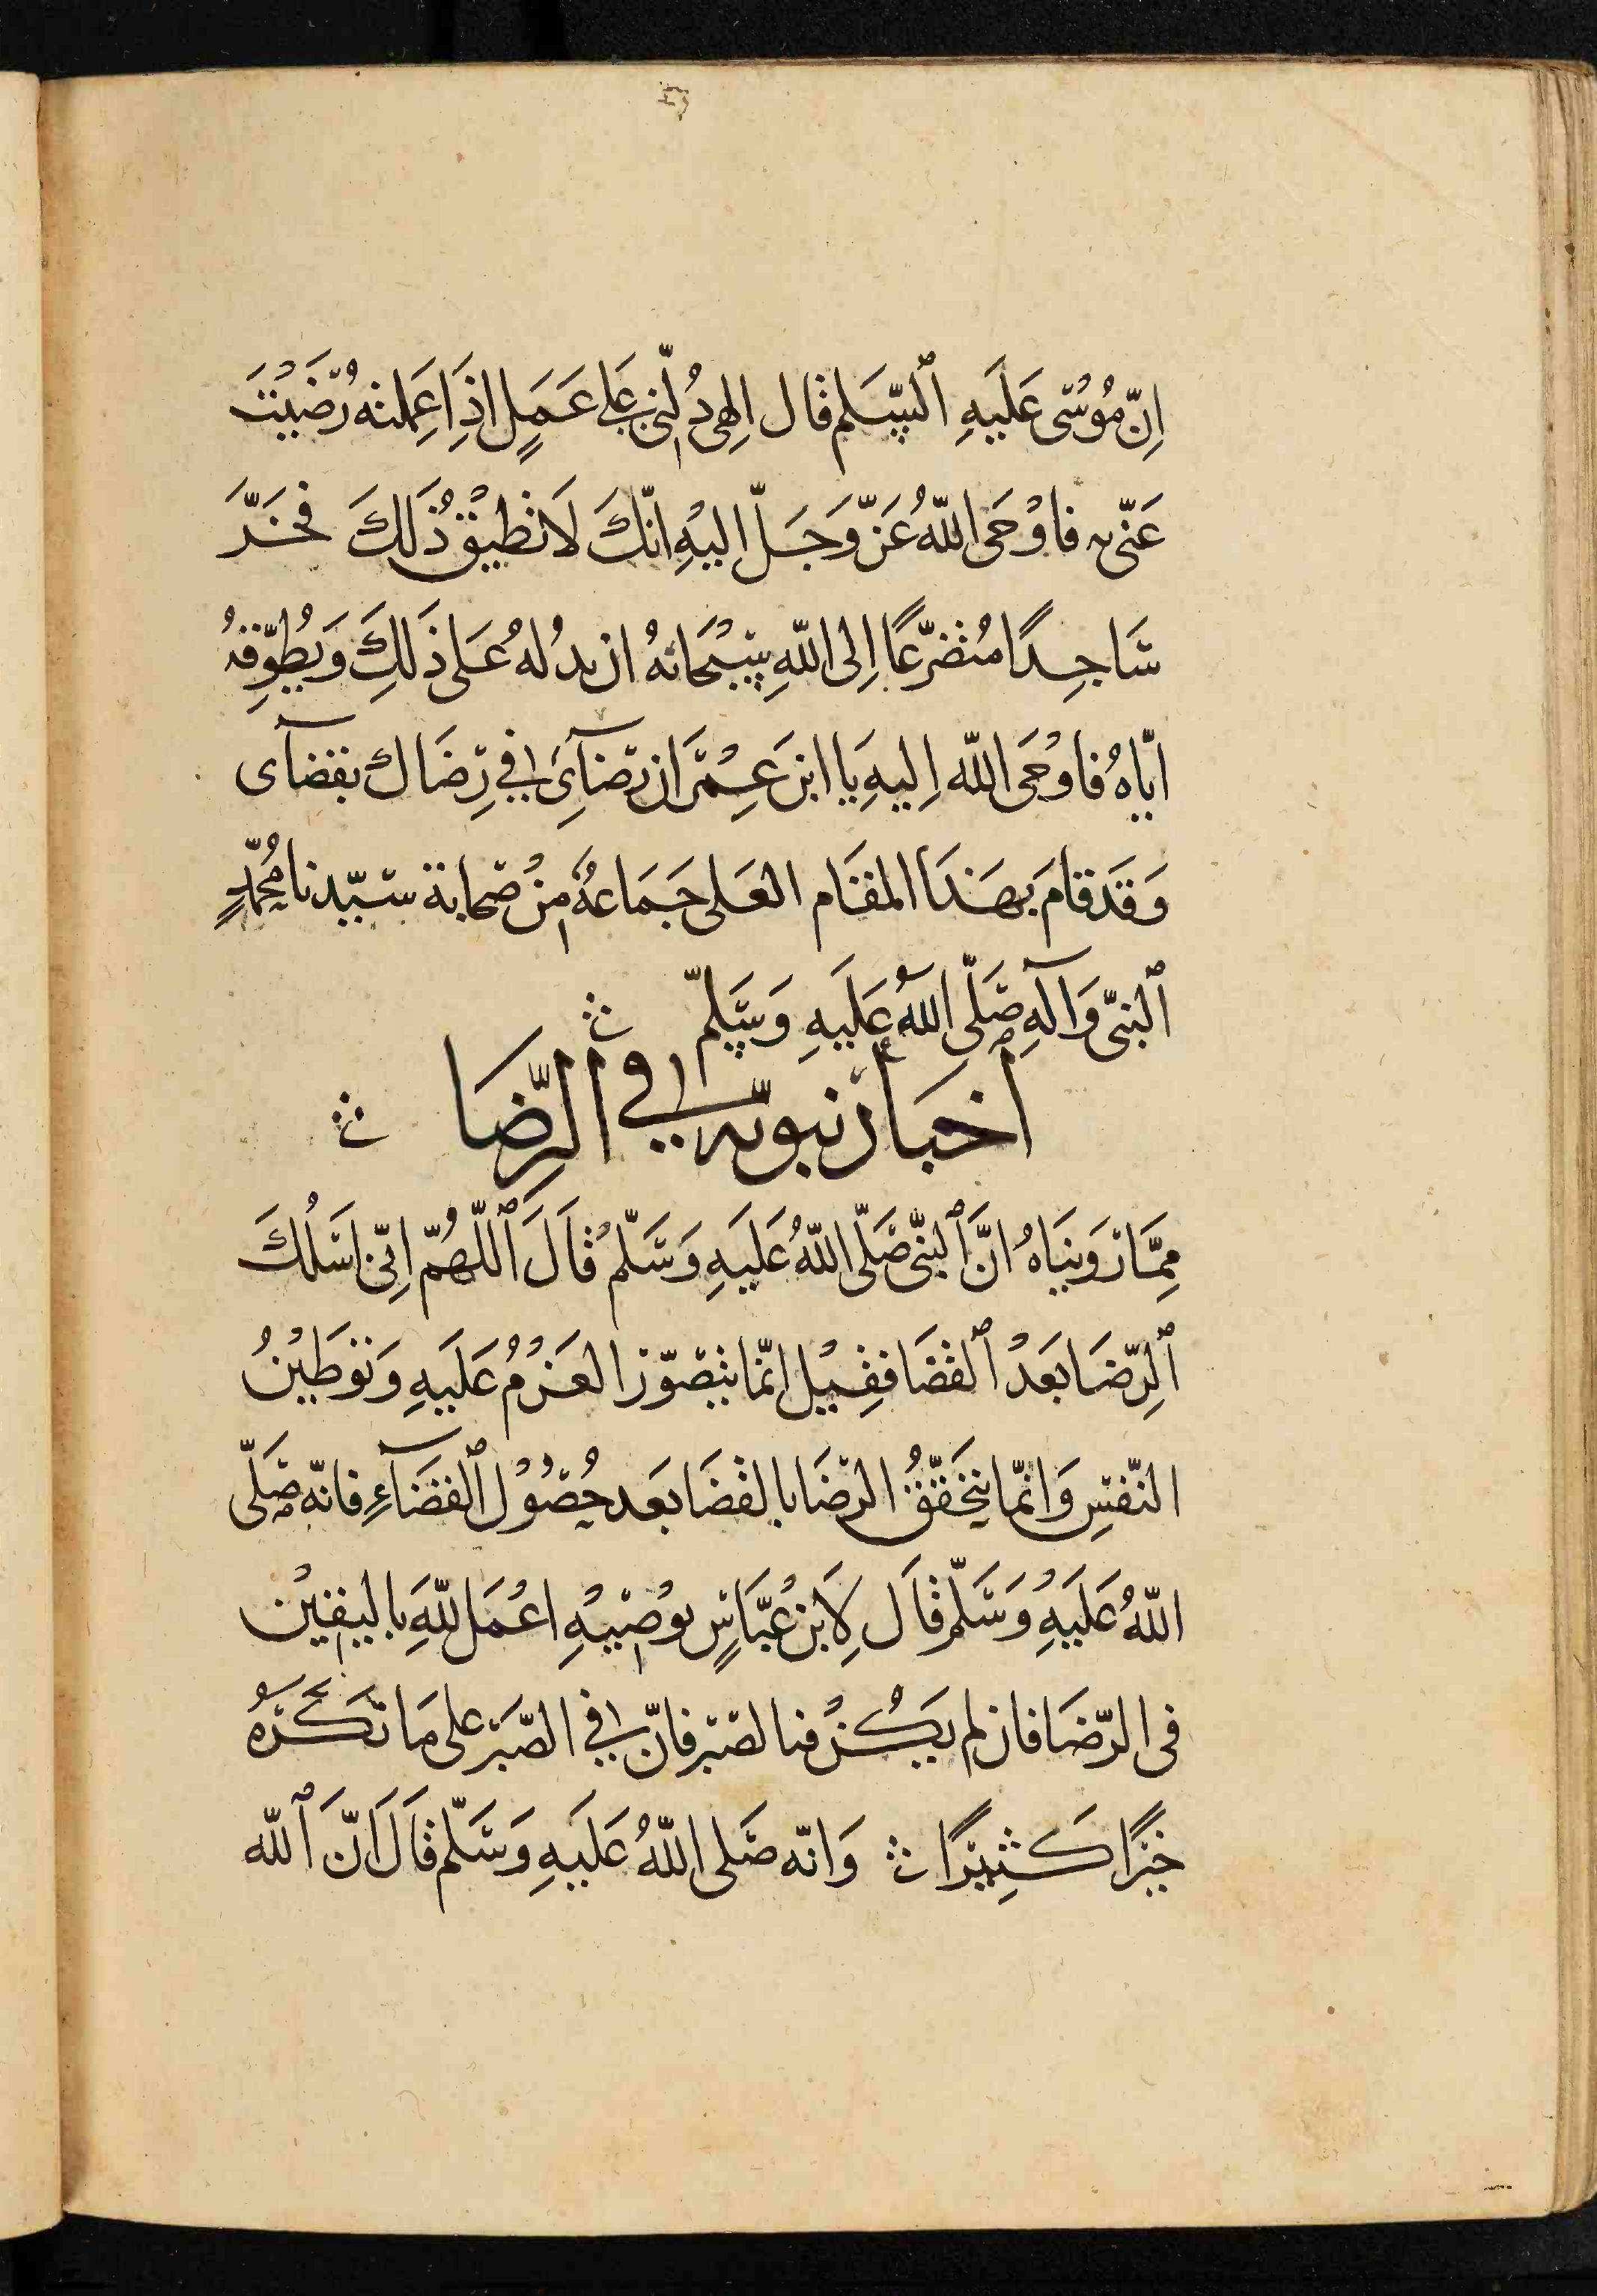 اِنّ مُوْسٰى عَلَيهِ ٱلسَّلم قال الهى دُلّنِى عَلى عَمَلٍ اذَِا عَمِلته رَضِيْتَ
عَنّى به فاوْحَى اللّهُ عَزّ وَجَلّ اليْهِ انّكَ لَا تطيْقُ ذَلكَ فخَرَّ
سَاجِدًا مُتضرّعًا اِلى اللّهِ سُبْحَانهُ ان يدُله عَلى ذَلِكَ وَيُطوّقهُ
ايّاهُ فاوْحَى اللّه اِليهِ يَا ابنَ عِمْرَان رِضَآئِ في رِضَاك بقضآى
وَقَد قامَ بهَذَا المقَام العَلى جَمَاعةٌ مِنْ صَحابة سَيّدنا مُحَمّدٍ
ٱلنبىّ وَآلهِ صَلّى اللهُ عَلَيهِ وَسَلّم
أخبَارٌ نبويّة في الرِّضَا
مِمَّا رَوَينَاهُ انَّ ٱلنبّى صَلّى اللّهُ عَلَيهِ وَسَلّم قَالَ ٱللّهُمّ اِنّى اسَلُكَ
ٱلرِّضَا بَعَدْ ٱلقضَا فقِيْل انّما يتصَوّر العَزْمُ عَلَيهِ وَتوَطِيْنُ
النّفسِ وَانّما يتحَقّقُ الرّضَا بالقضَا بَعد حُصُوْل ٱلقضَآءِ فانّه صَلّى
اللّهُ عَلَيهِ وَسَلّم قَال لِابْن عَبّاسٍ يوُصِيْهِ اعْمَل للّهِ باليقِيْن
فى الرّضَا فان لم يَكُنْ فالصَبر فانّ في الصّبَر على مَا تكَرَهُ
خَيرًا كَثِيرًا وَانّه صَلى اللّهُ عَلَيهِ وَسَلّم قَالَ انّ ٱللّه